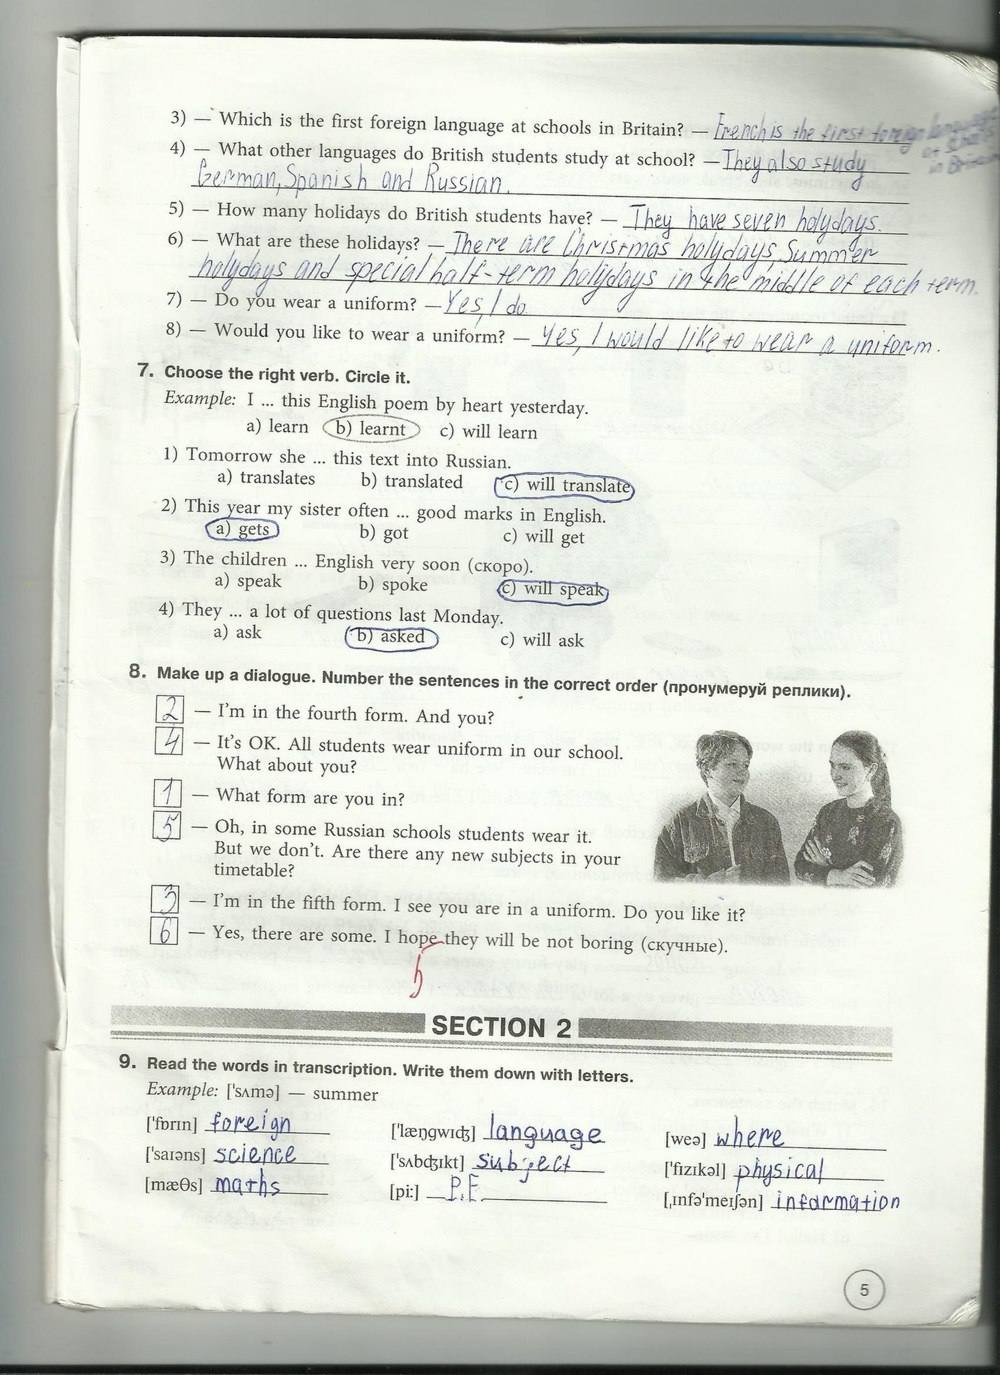 3) — Which is the first foreign language at schools in Britain? — French is the first foreign language
at schools
in Britain
4) — What other languages do British students study at school? — They also study
German, Spanish and Russian.
5) — How many holidays do British students have? — They have seven holydays.
6) — What are these holidays? — There are Christmas holydays, Summer
holydays and special half-term holydays in the middle of each term.
7) — Do you wear a uniform? — Yes, I do
8) — Would you like to wear a uniform? — Yes, I would like to wear a uniform.
7. Choose the right verb. Circle it.
Example: I ... this English poem by heart yesterday.
a) learn b) learnt c) will learn
1) Tomorrow she ... this text into Russian.
a) translates b) translated c) will translate
2) This year my sister often ... good marks in English.
a) gets b) got c) will get
3) The children ... English very soon (скоро).
a) speak b) spoke c) will speak
4) They ... a lot of questions last Monday.
a) ask b) asked c) will ask
8. Make up a dialogue. Number the sentences in the correct order (пронумеруй реплики).
2 — I'm in the fourth form. And you?
4 — It's OK. All students wear uniform in our school.
What about you?
1 — What form are you in?
5 — Oh, in some Russian schools students wear it.
But we don't. Are there any new subjects in your
timetable?
3 — I'm in the fifth form. I see you are in a uniform. Do you like it?
6 — Yes, there are some. I hope they will be not boring (скучные).
5
SECTION 2
9. Read the words in transcription. Write them down with letters.
Example: ['sʌmə] — summer
['fɒrɪn] foreign ['læŋgwɪʤ] language [weə] where
['saɪəns] science ['sʌbʤɪkt] subject ['fɪzɪkəl] physical
[mæθs] maths [pi:] P.E. [ˌɪnfə'meɪʃən] information
5